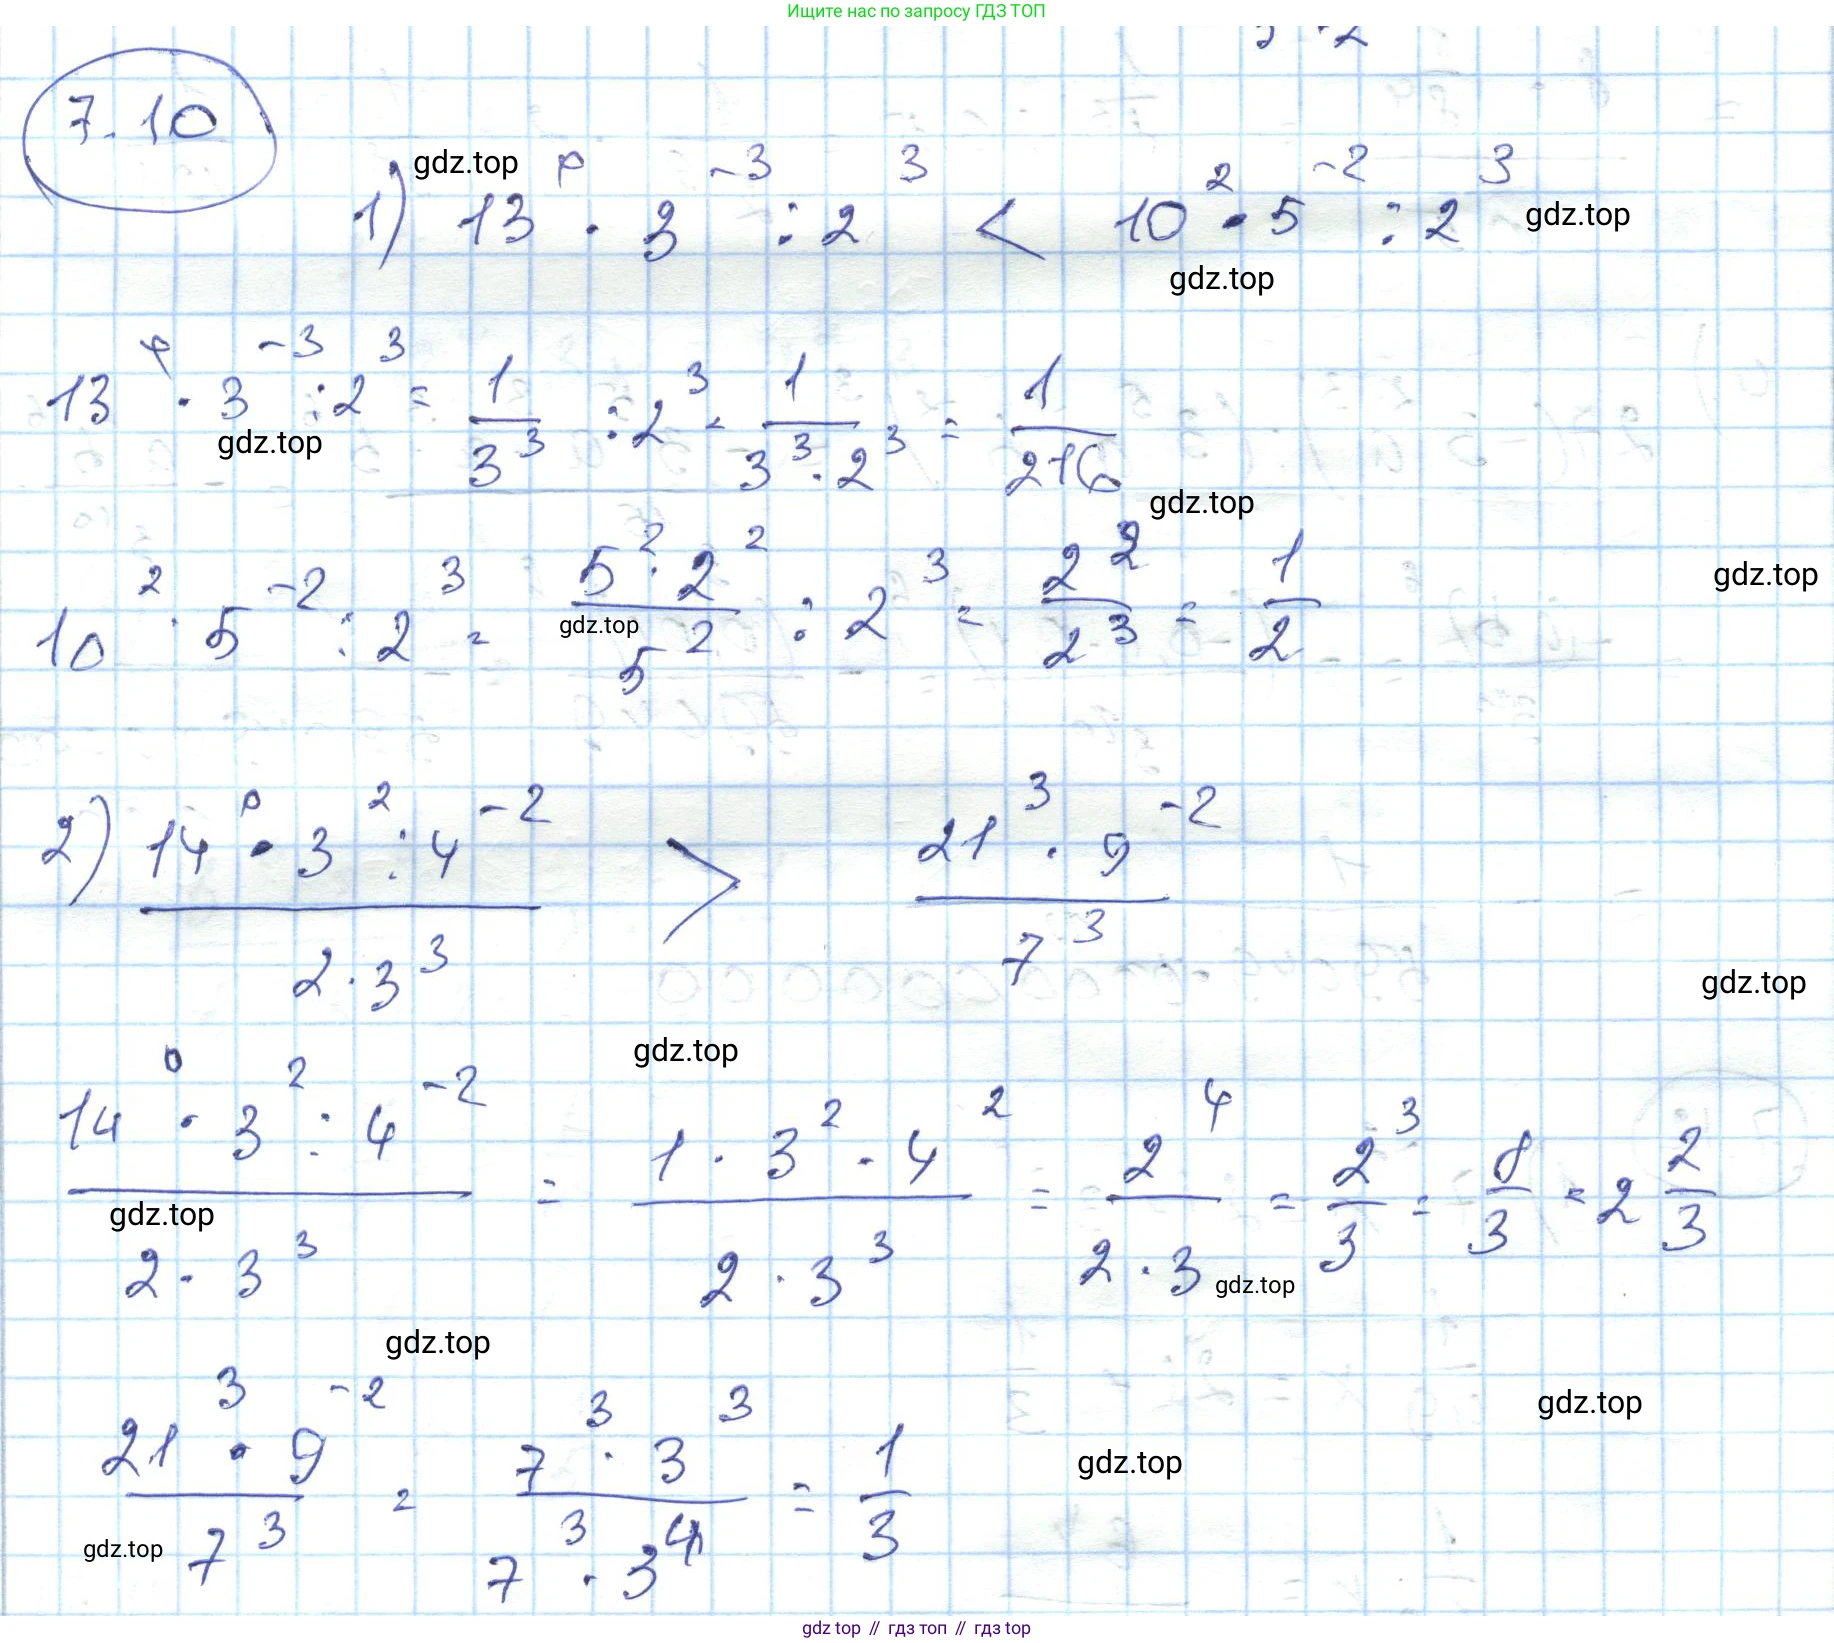 Ищите нас по запросу ГДЗ ТОП
7.10
1) 13⁰ · 3⁻³ : 2³ < 10² · 5⁻² : 2³
gdz.top
gdz.top
gdz.top
13⁰ · 3⁻³ : 2³ = 1/3³ : 2³ = 1/(3³ · 2³) = 1/216
gdz.top
gdz.top
10² · 5⁻² : 2³ = (5² · 2²)/5² : 2³ = 2²/2³ = 1/2
gdz.top
gdz.top
2) (14⁰ · 3² : 4⁻²)/(2 · 3³) > (21³ · 9⁻²)/7³
gdz.top
gdz.top
(14⁰ · 3² : 4⁻²)/(2 · 3³) = (1 · 3² · 4²)/(2 · 3³) = 2⁴/(2 · 3) = 2³/3 = 8/3 = 2 2/3
gdz.top
gdz.top
gdz.top
(21³ · 9⁻²)/7³ = (7³ · 3³)/(7³ · 3⁴) = 1/3
gdz.top
gdz.top
gdz.top
gdz top // гдз топ // gdz top